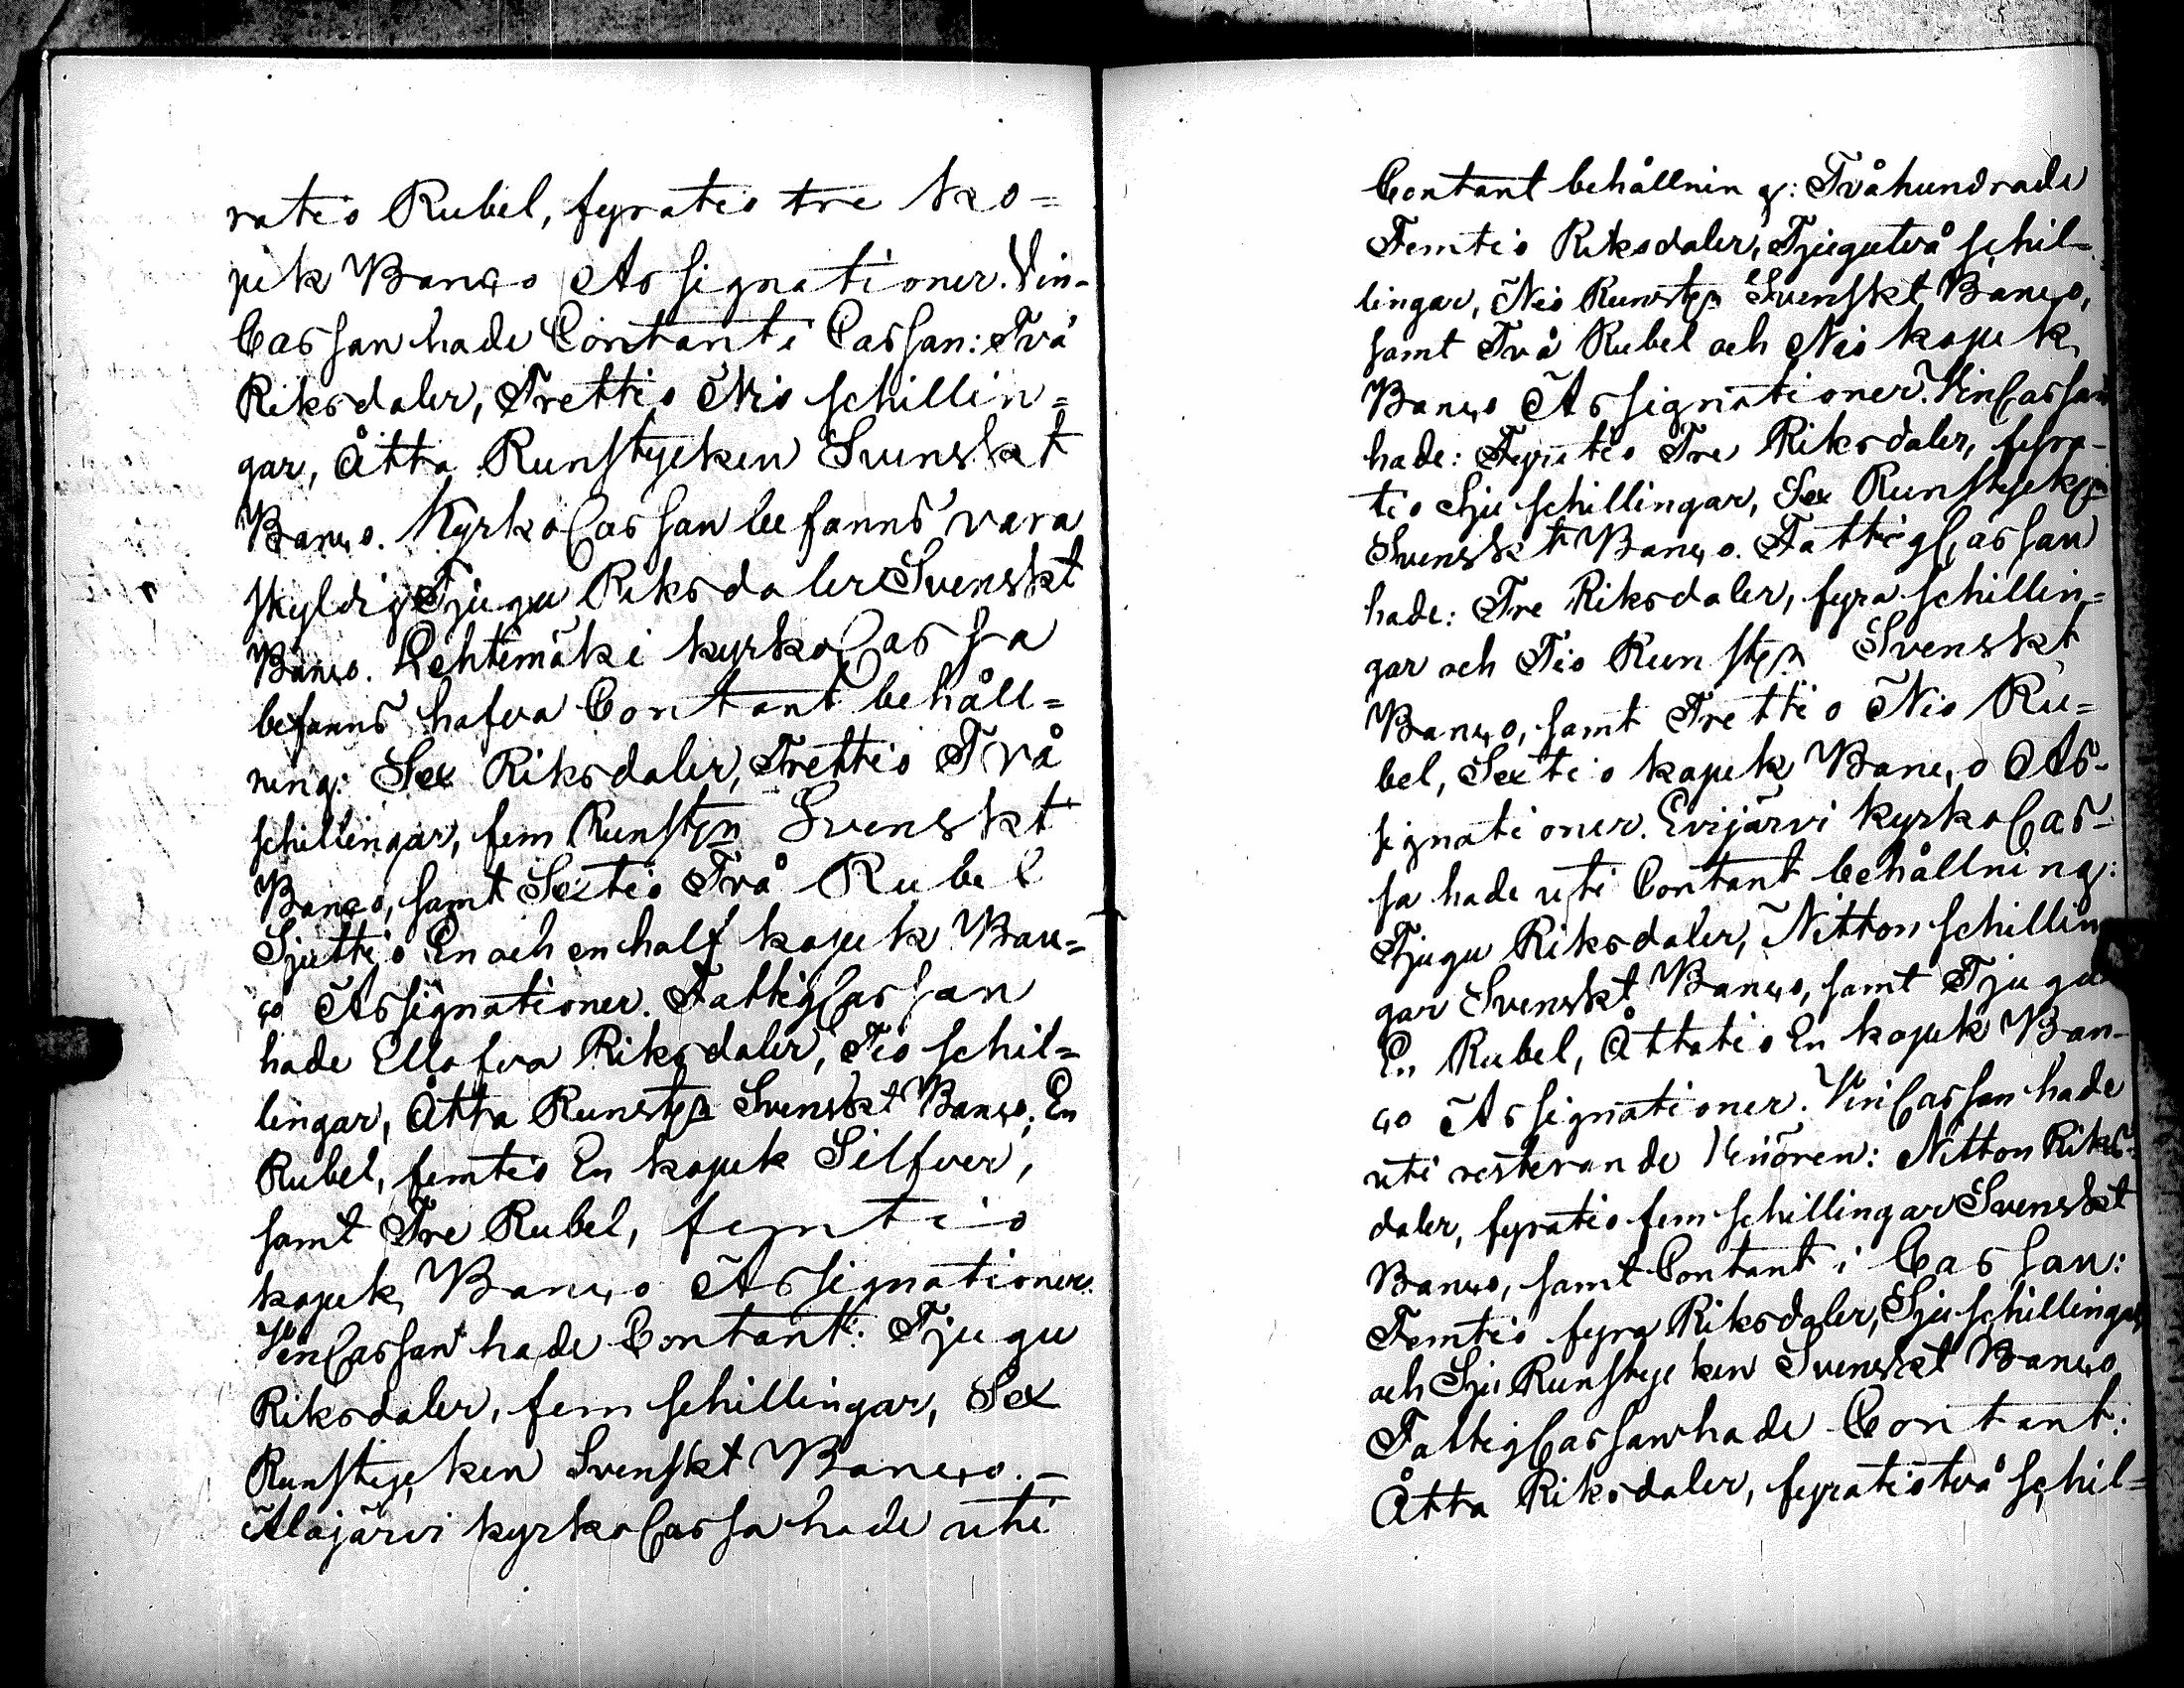 ratio Rubel, fyratio tre ko=
pik Banco Assignationer. Vin-
Cassan hade Contant i Cassan: Två
Riksdaler, Trettio Nio schillin=
gar, Åtta Runstycken Svenskt
Banco. KyrkoCassan befanns vara
skyldig Tjugu Riksdaler Svenskt
Banco. Lehtimäki kyrkoCassa
befanns hafva Contant behåll=
ning: Sex Riksdaler, Trettio Två
schillingar, fem Runstn Svenskt
Banco, samt Sextio Två Rubel
Sjuttio En och en half kopek Ban=
co Assignationer. FattigCassan
hade Ellofva Riksdaler, Tio schil=
lingar, Åtta Runstn Svenskt Banco, En
Rubel, femtio En kopek Silfver,
samt Tre Rubel, femtio
kopek Banco Assignationer.
VinCassan hade Contant: Tjugu
Riksdaler, fem schillingar, Sex
Runstycken Svenskt Banco. –
Alajärvi kyrkoCassa hade uti
Contant behållning: Tvåhundrade
Femtio Riksdaler, Tjugutvå schil-
lingar, Nio Runstn Svenskt Banco,
samt Två Rubel och Nio kopek
Banco Assignationer. VinCassan
hade: Fyratio Tre Riksdaler, fyra-
tio Sju schillingar, Sex Runstycken
Svenskt Banco. FattigCassan
hade: Tre Riksdaler, fyra schillin=
gar och Tio Runstn Svenskt
Banco, samt Trettio Nio Ru=
bel, Sextio kopek Banco As-
signationer. Evijärvi kyrkoCas-
sa hade uti Contant behållning:
Tjugu Riksdaler, Nitton schillin
gar Svenskt Banco, samt Tjugu
En Rubel, Åttatio En kopek Ban-
co Assignationer. VinCassan hade
uti resterande Vinören: Nitton Riks-
daler, fyratio fem schillingar Svenskt
Banco, samt Contant i Cassan:
Femtio fyra Riksdaler, Sju schillingar,
och Sju Runstycken Svenskt Banco
FattigCassan hade Contant:
Åtta Riksdaler, fyratiotvå schil=